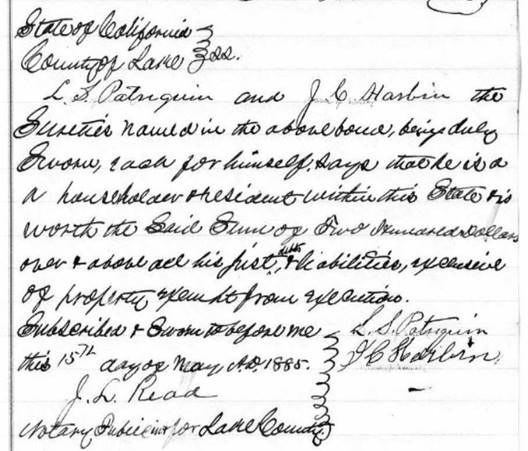 State of California }
County of Lake } ss.
L. S. Patriquin and J. C. Harbin the
Sureties named in the above bond, being duly
Sworn, each for himself, says that he is a
a householder & resident within this State & is
worth the Said Sum of Two Hundred Dollars
over & above all his just debts & liabilities, exclusive
of property exempt from execution.
Subscribed & Sworn to before me } L. S. Patriquin
this 15th day of May A.D. 1885. } J C Harbin.
J. L. Read
Notary Public in & for Lake County }